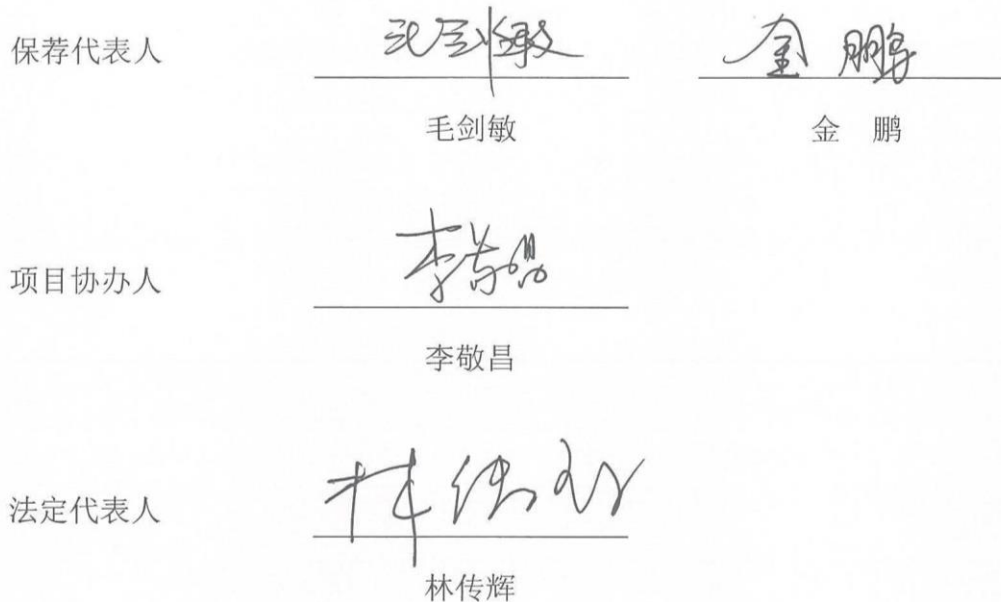 保荐代表人 毛剑敏 金鹏
毛剑敏 金 鹏
项目协办人 李敬昌
李敬昌
法定代表人 林传辉
林传辉